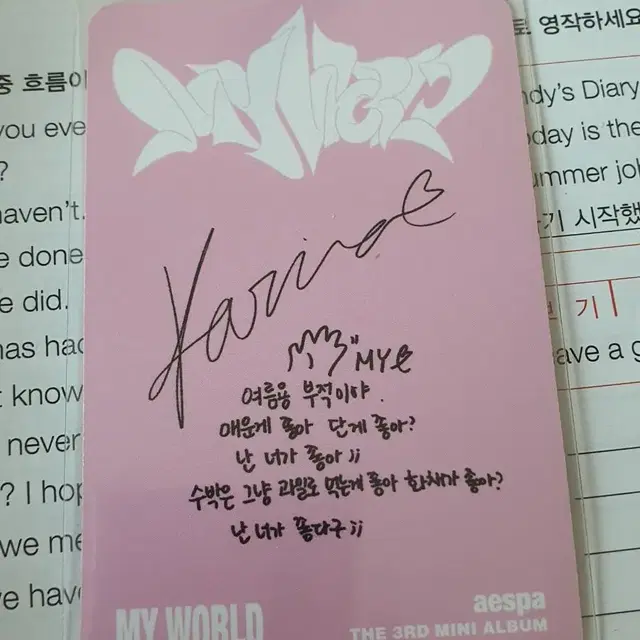 중 흐름이
you eve
?
haven't.
e done
e did.
has had
t know
never
? I hop
we me
e hav
MY WORLD
Karina
MY
여름용 부적이야.
매운게 좋아 단게 좋아?
난 너가 좋아ㅣㅣ
수박은 그냥 과일로 먹는게 좋아 화채가 좋아?
난 너가 좋다구ㅣㅣ
MY WORLD
aespa
THE 3RD MINI ALBUM
영작하세요
ndy's Diary
day is the
ummer jo
기 시작했
기
ave a g